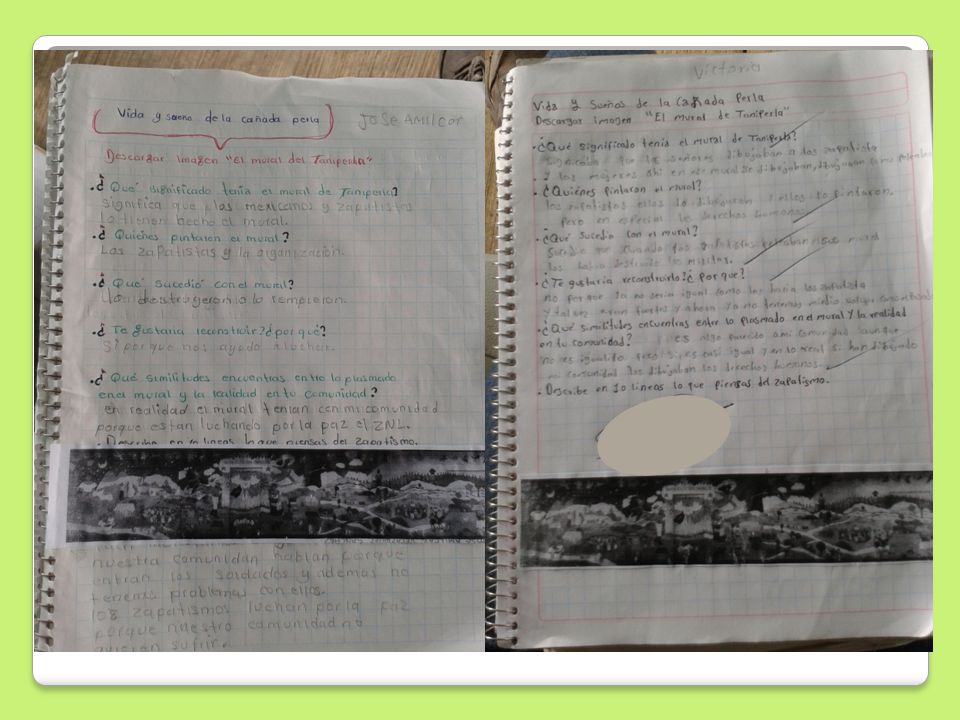 Vida y sueño de la cañada perla
Jose AMilcar
Descargar Imagen "El mural del Taniperla"
¿Qué significado tenía el mural de Taniperla?
significa que los mexicanos y zapatistas
lo tienen hecho el moral.
¿Quiénes pintaron el mural?
Los zapatistas y la organización.
¿Qué sucedió con el mural?
destrozeron o lo rompieron.
¿Te gustaría reconstruir? ¿por qué?
Si porque nos ayudo a luchar.
¿Qué similitudes encuentras entre lo plasmado
en el mural y la realidad en tu comunidad?
en realidad el mural tenian con mi comunidad
porque estan luchando por la paz el ZNL.
Describe en 10 lineas lo que piensas del zapatismo.
nuestra comunidad hablan porque
entran los soldados y ademas no
tenemos problemas con ellos.
los zapatismos luchan por la paz
porque nuestro comunidad no
quieran sufrir.
Victoria
Vida y Sueños de la Cañada Perla
Descargar imagen "El Mural de Taniperla"
¿Qué significado tenía el mural de Taniperla?
significa que los dibujaban a los zapatista
y las mujeres ahi en ese mural se dibujaban, dibujaban como
¿Quiénes pintaron el mural?
los zapatistas ellos lo dibujaron y ellos lo pintaron,
pero en especial los derechos humanos.
¿Qué sucedió con el mural?
Sucedio que cuando los zapatistas mural
los habia destruido los
¿Te gustaría reconstruirlo? ¿por qué?
no porque ya no seria igual como los hacia los zapatista
y tal vez eran fuertes y ahora ya no tenemos
¿Qué similitudes encuentras entre lo plasmado en el mural y la realidad
en tu comunidad? es algo parecido a mi comunidad aunque
no es igualito pero si, es casi igual y en lo real si han dibujado
mi comunidad los dibujaban los derechos humanos.
Describe en 10 lineas lo que piensas del zapatismo.